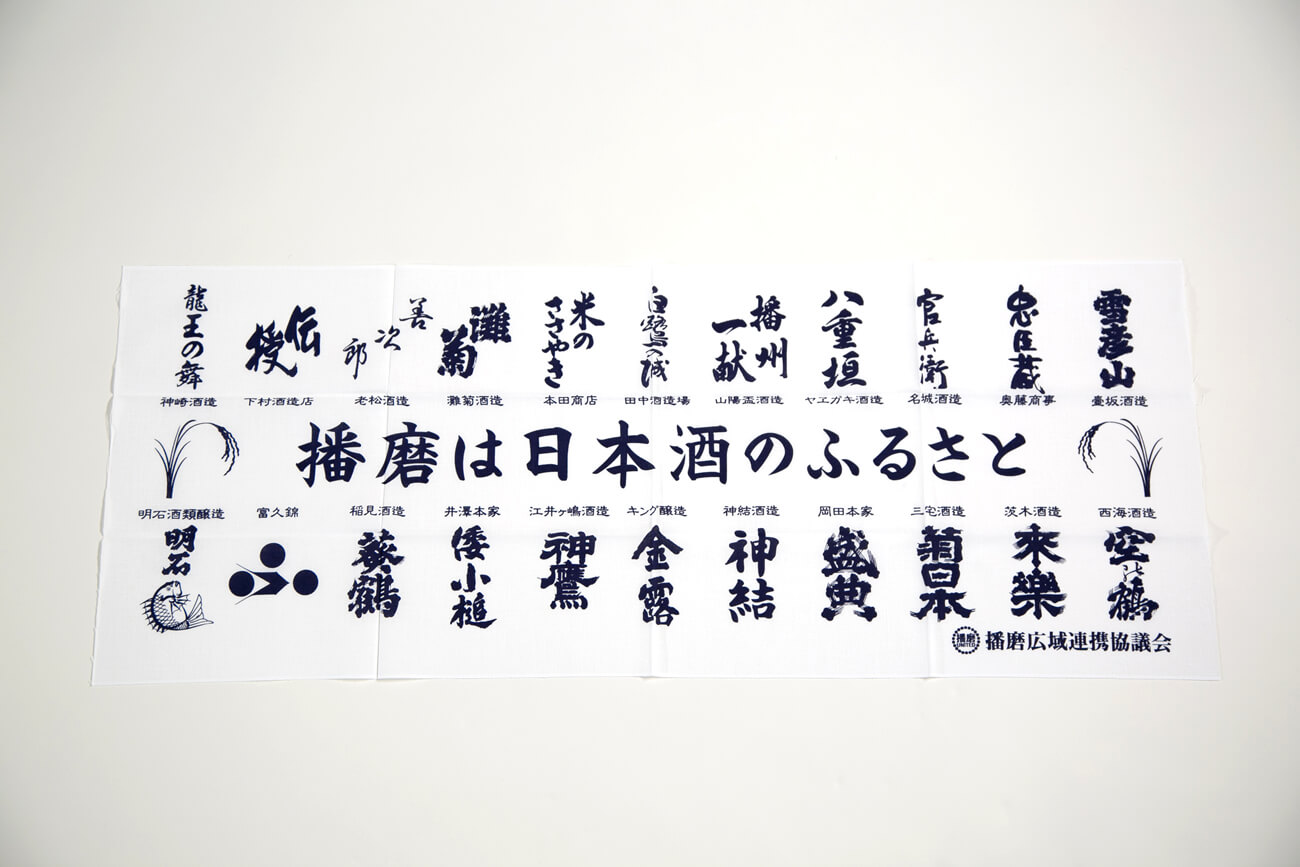 龍王の舞
伝授
善次郎
灘菊
米のささやき
白鷺の城
播州一献
八重垣
官兵衛
忠臣蔵
雪彦山
神崎酒造
下村酒造店
老松酒造
灘菊酒造
本田商店
田中酒造場
山陽盃酒造
ヤヱガキ酒造
名城酒造
奥藤商事
壺坂酒造
播磨は日本酒のふるさと
明石酒類醸造
富久錦
稲見酒造
井澤本家
江井ヶ嶋酒造
キング醸造
神結酒造
岡田本家
三宅酒造
茨木酒造
西海酒造
明石
葵鶴
倭小槌
神鷹
金露
神結
盛典
菊日本
来樂
空の鶴
播磨 UNITED
播磨広域連携協議会